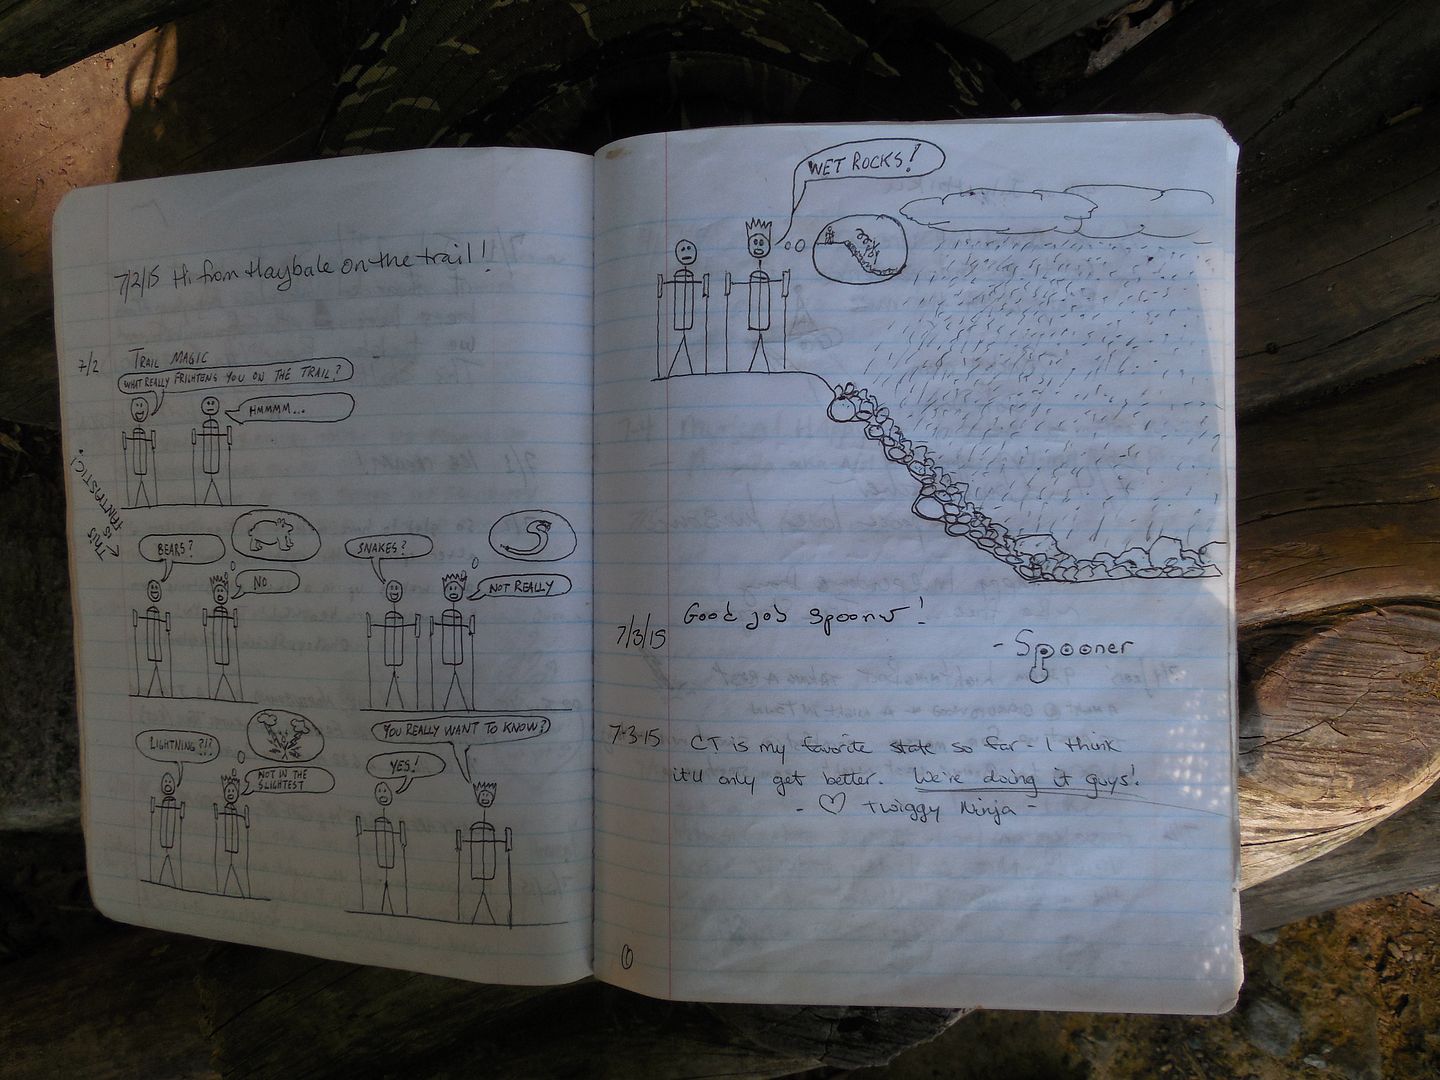 7/2/15 Hi from Haybale on the trail!
7/2
TRAIL MAGIC
WHAT REALLY FRIHTENS YOU ON THE TRAIL?
HMMMM...
THIS IS FANTASTIC!
BEARS?
NO.
SNAKES?
NOT REALLY
LIGHTNING?!?
NOT IN THE
SLIGHTEST
YES!
YOU REALLY WANT TO KNOW?
WET ROCKS!
- Spooner
7/3/15 Good job Spooner!
7-3-15 CT is my favorite state so far - I think
it'll only get better. We're doing it guys!
- ♡ Twiggy Ninja -